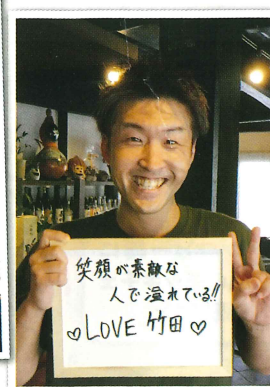 笑顔が素敵な
人で溢れている!!
♡LOVE 竹田♡